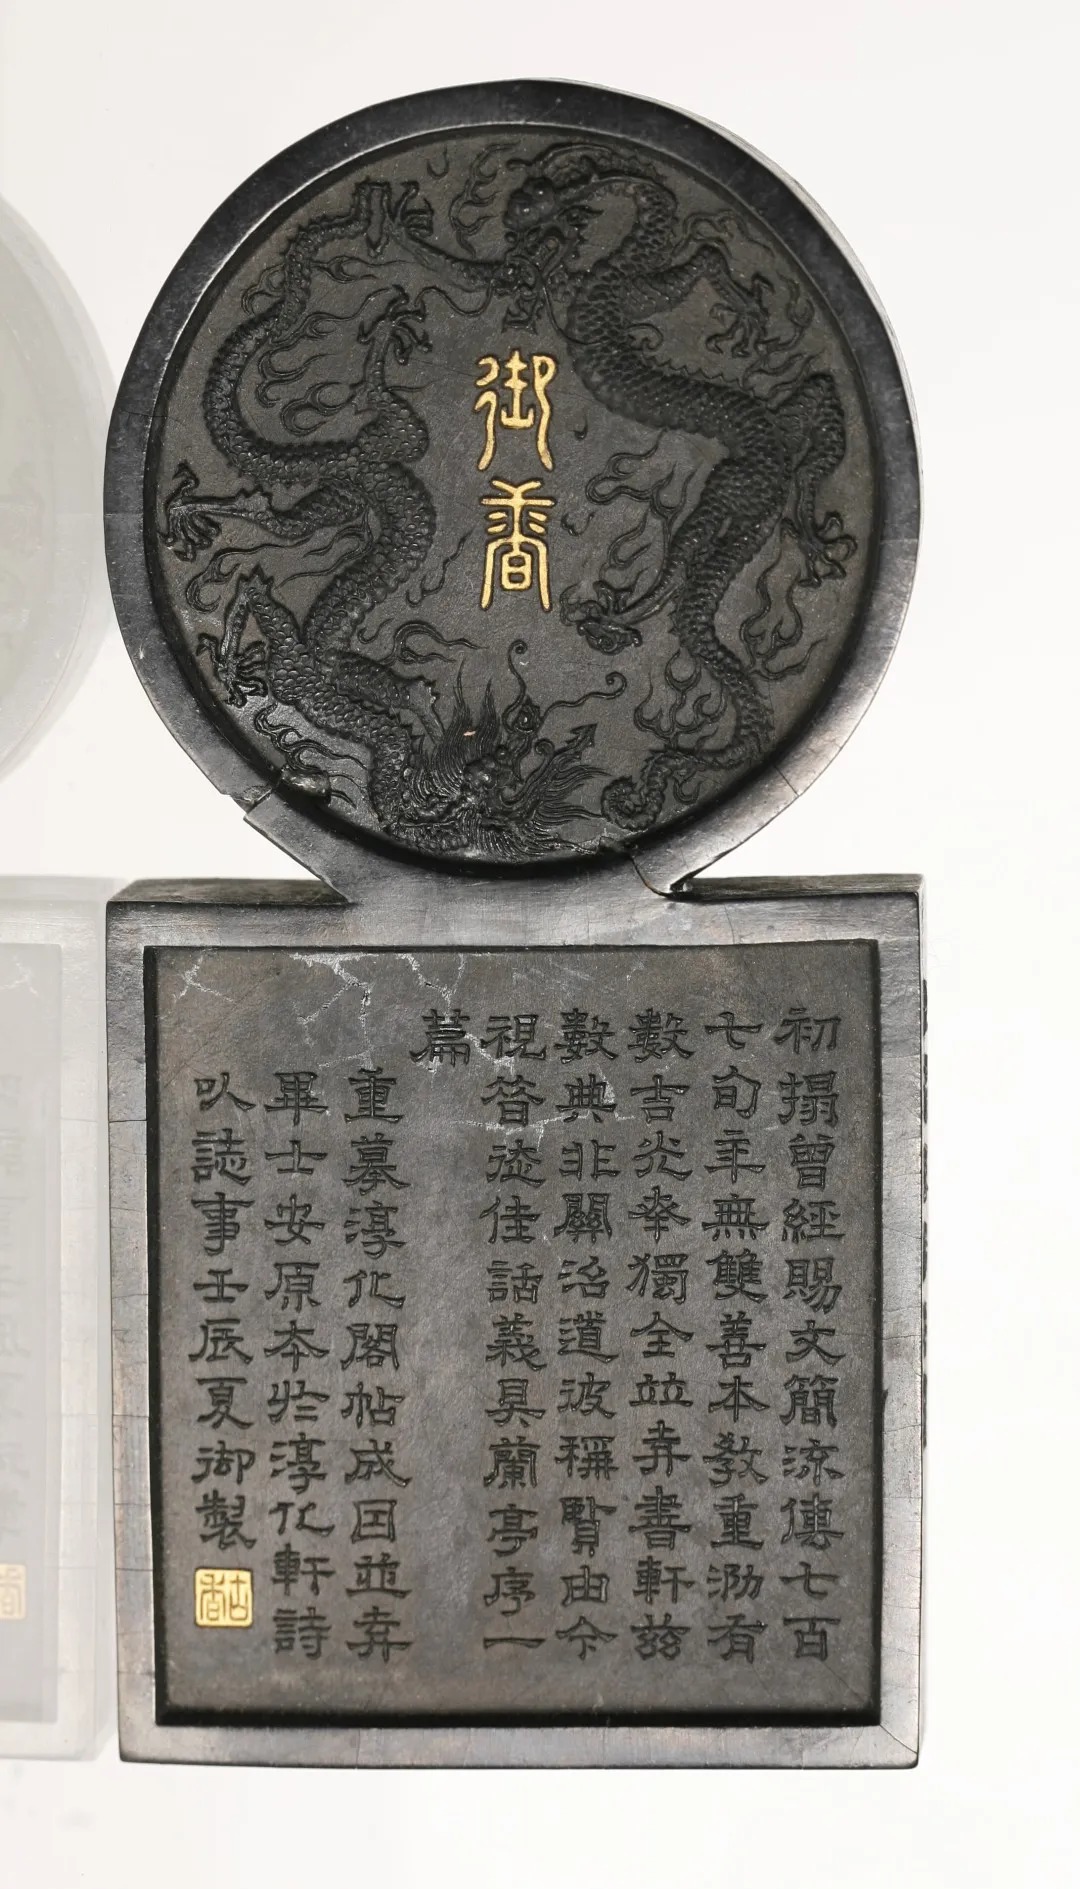 御香
初搨曾經賜文簡流傳七百
七旬年無雙善本教重泐有
數吉光幸獨全竝弆書軒茲
數典非關治道彼稱賢由今
視昔從佳話義具蘭亭序一
篇
重摹淳化閣帖成因並弆
畢士安原本於淳化軒詩
以誌事壬辰夏御製
古香